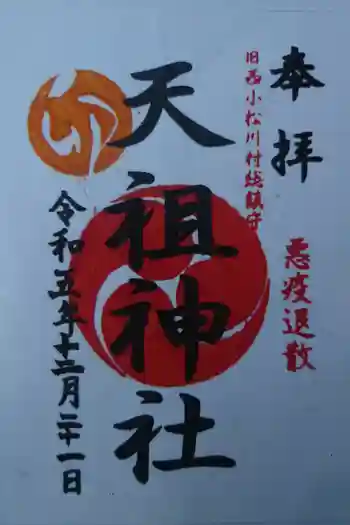 奉拝
旧西小松川村総鎮守
悪疫退散
天祖神社
令和五年十二月二十一日